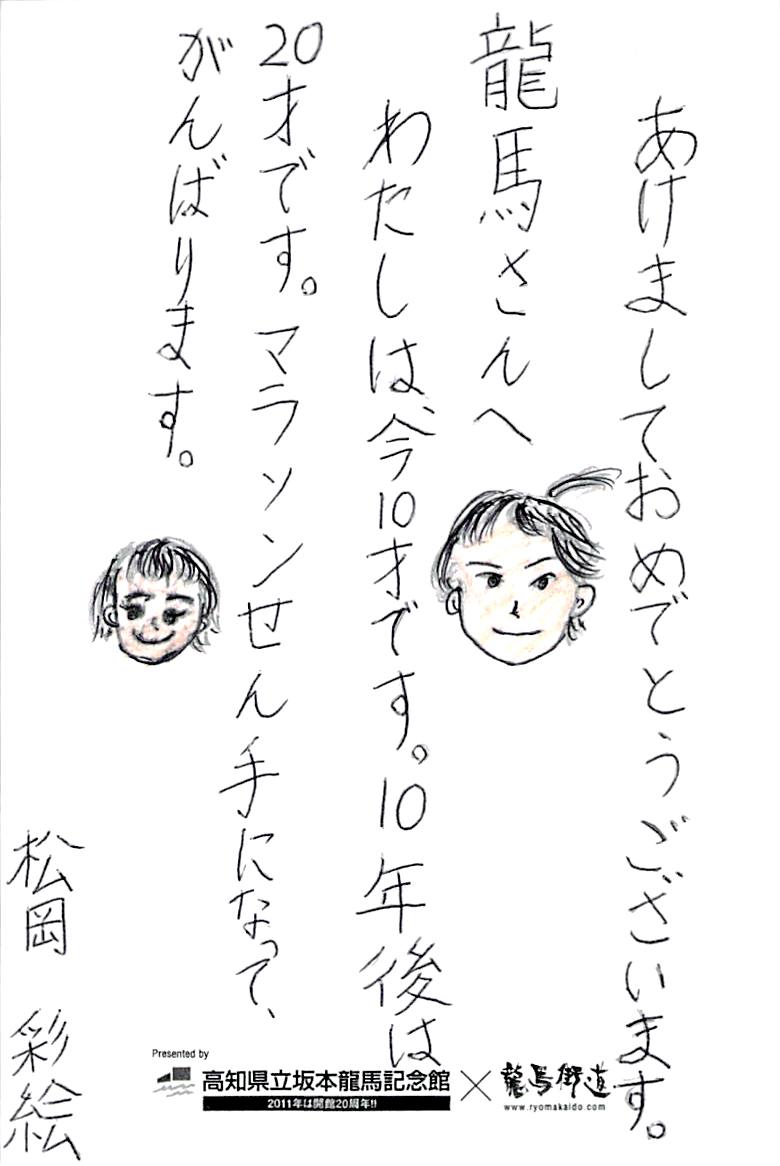 あけましておめでとうございます。
龍馬さんへ
わたしは、今10才です。10年後は
20才です。マラソンせん手になって、
がんばります。
松岡 彩絵
Presented by
高知県立坂本龍馬記念館
2011年は開館20周年!!
×
龍馬街道
www.ryomakaido.com